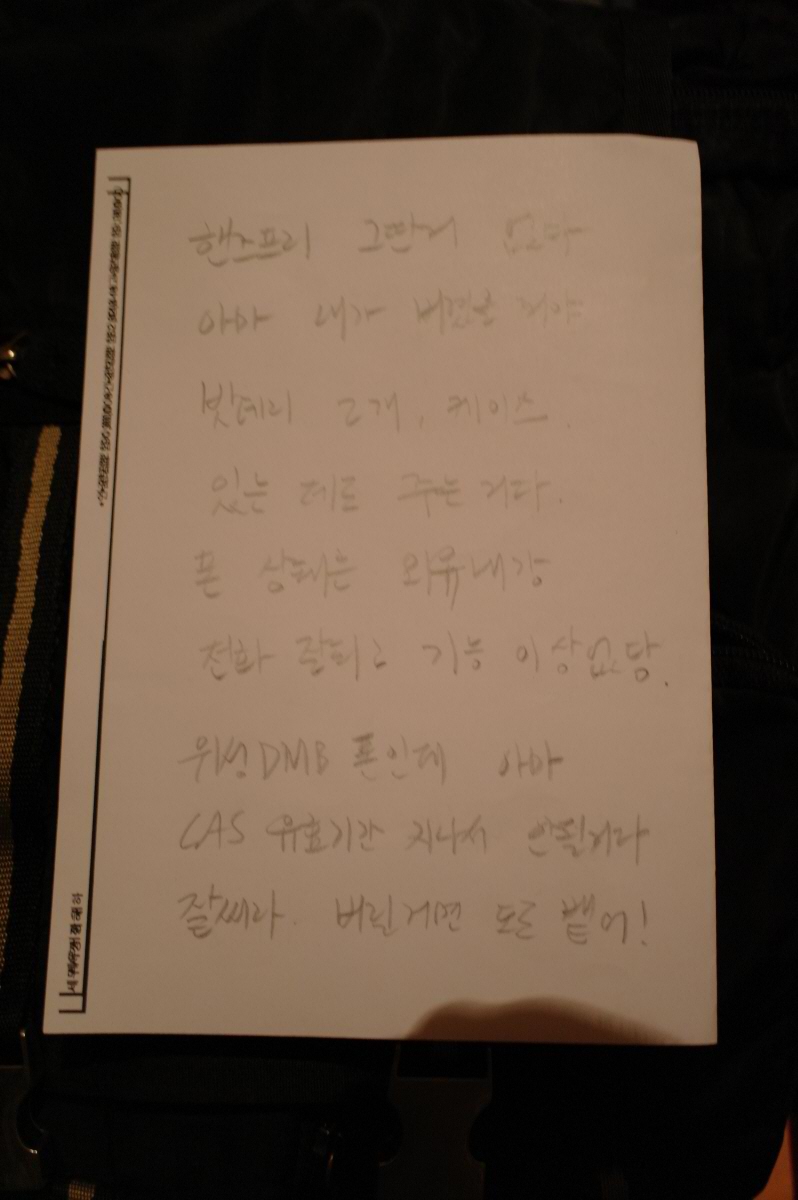 핸즈프리 그딴거 없다
아마 내가 버렸을 거야
밧데리 2개, 케이스.
있는 데로 주는 거다.
폰 상태는 외유내강
전화 잘되고 기능 이상없당.
위성DMB 폰인데 아마
CAS 유효기간 지나서 안될거다
잘써라. 버린거면 도로 뱉어!